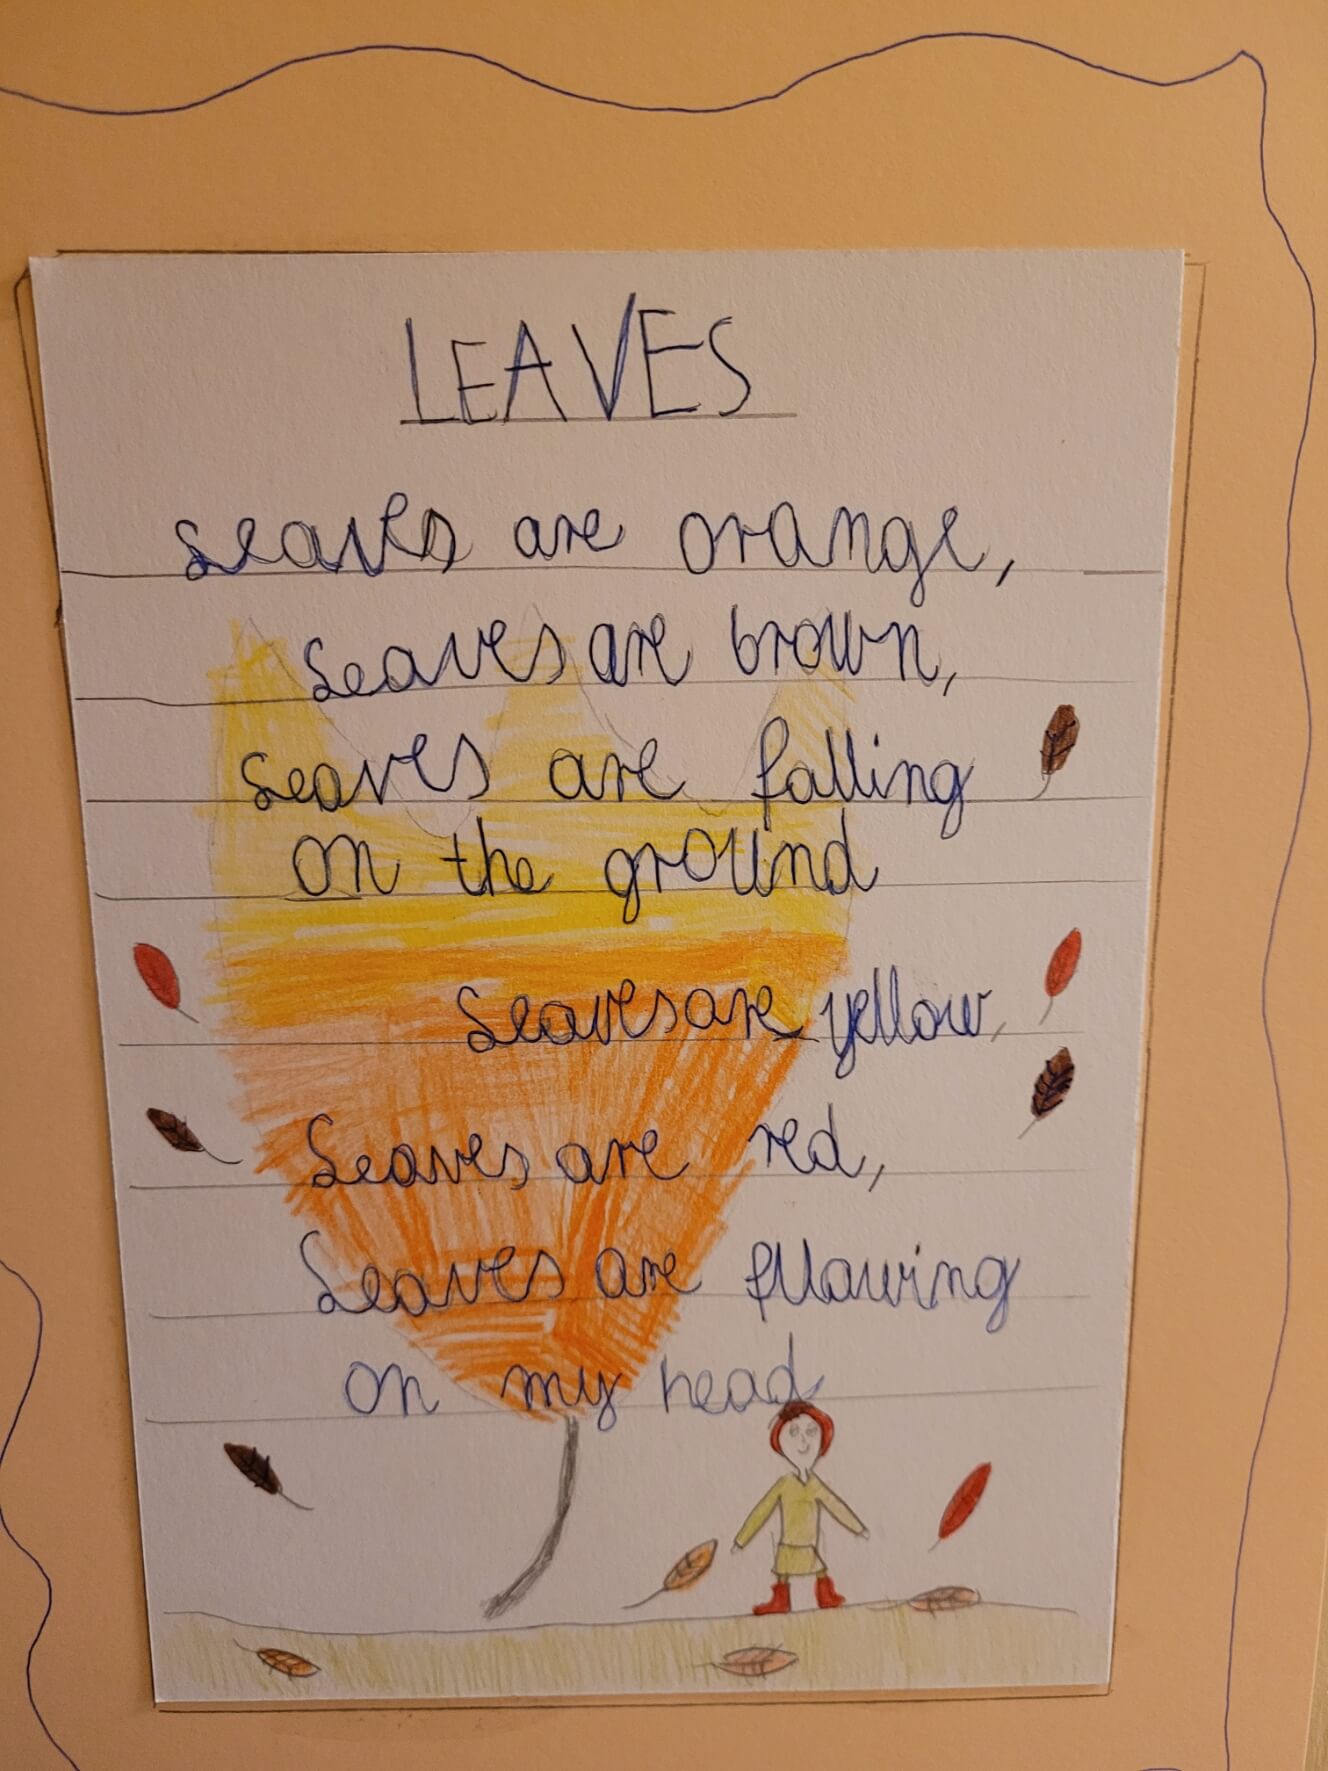 LEAVES
Leaves are orange,
Leaves are brown,
Leaves are falling
on the ground
Leaves are yellow,
Leaves are red,
Leaves are fllawing
on my head